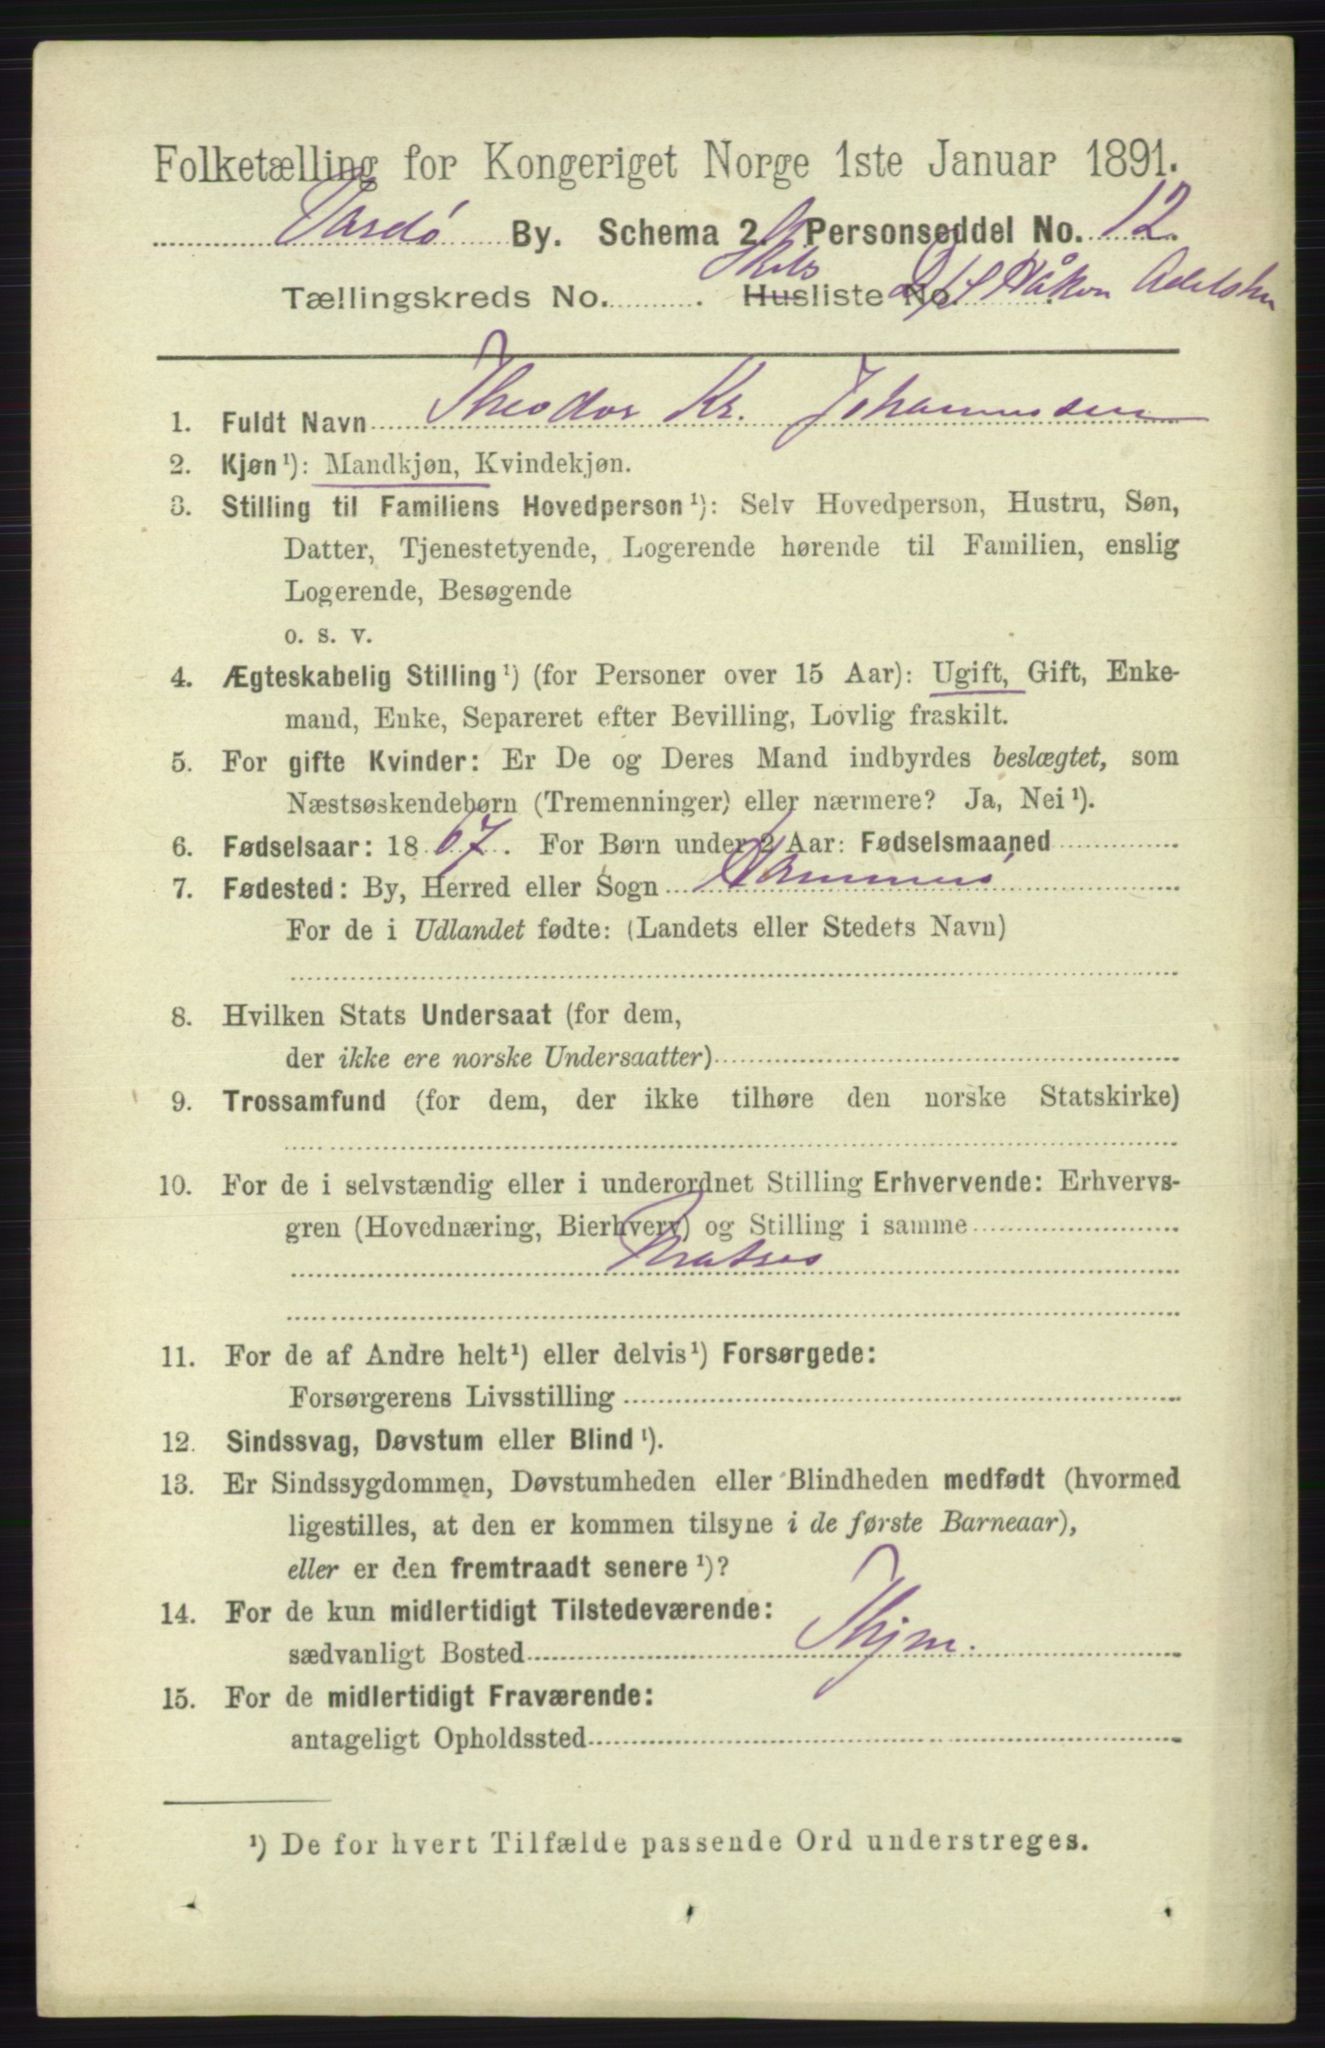 Folketælling for Kongeriget Norge 1ste Januar 1891.
Vardø By. Schema 2. Personseddel No. 12.
Tællingskreds No. Skibsliste No. D/S Håkon Adelsten
1. Fuldt Navn Theodor Kr. Johannesen
2. Kjøn ¹): Mandkjøn, Kvindekjøn.
3. Stilling til Familiens Hovedperson ¹): Selv Hovedperson, Hustru, Søn,
Datter, Tjenestetyende, Logerende hørende til Familien, enslig
Logerende, Besøgende
o. s. v.
4. Ægteskabelig Stilling ¹) (for Personer over 15 Aar): Ugift, Gift, Enke-
mand, Enke, Separeret efter Bevilling, Lovlig fraskilt.
5. For gifte Kvinder: Er De og Deres Mand indbyrdes beslægtet, som
Næstsøskendebørn (Tremenninger) eller nærmere? Ja, Nei ¹).
6. Fødselsaar: 1867. For Børn under 2 Aar: Fødselsmaaned
7. Fødested: By, Herred eller Sogn
For de i Udlandet fødte: (Landets eller Stedets Navn)
8. Hvilken Stats Undersaat (for dem,
der ikke ere norske Undersaatter)
9. Trossamfund (for dem, der ikke tilhøre den norske Statskirke)
10. For de i selvstændig eller i underordnet Stilling Erhvervende: Erhvervs-
gren (Hovednæring, Bierhverv) og Stilling i samme
Matros
11. For de af Andre helt ¹) eller delvis ¹) Forsørgede:
Forsørgerens Livsstilling
12. Sindssvag, Døvstum eller Blind ¹).
13. Er Sindssygdommen, Døvstumheden eller Blindheden medfødt (hvormed
ligestilles, at den er kommen tilsyne i de første Barneaar),
eller er den fremtraadt senere ¹)?
14. For de kun midlertidigt Tilstedeværende:
sædvanligt Bosted Thjm.
15. For de midlertidigt Fraværende:
antageligt Opholdssted
¹) De for hvert Tilfælde passende Ord understreges.